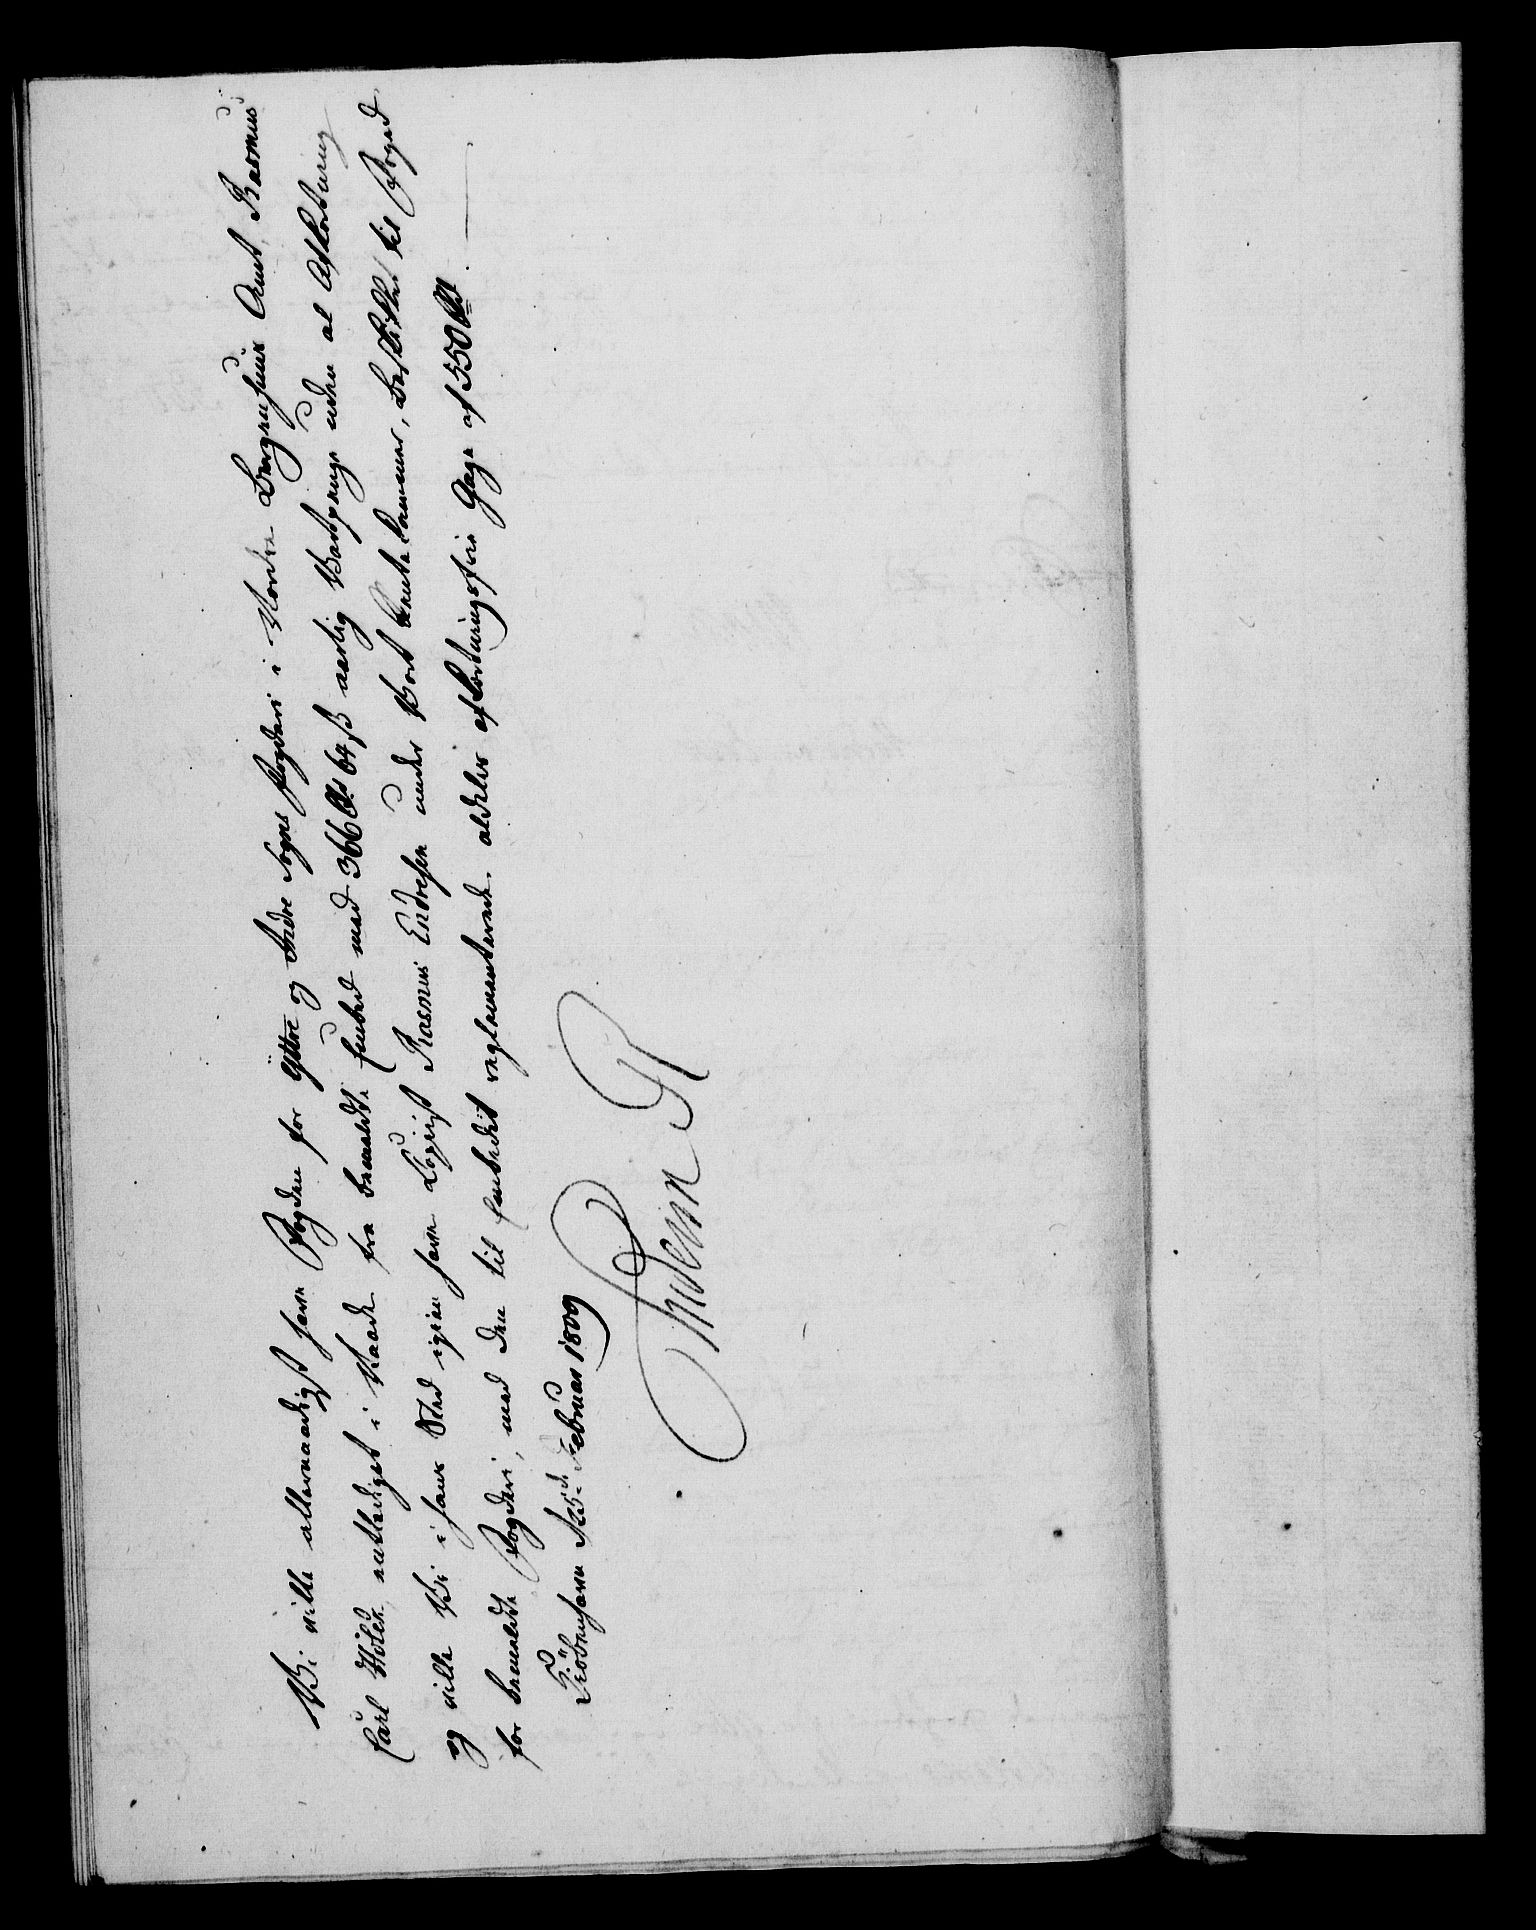 Vi ville allernaadigst have Fogden for Yttre og Indre Sogns Fogderi i Nordre Bergenhuus Amt, Rasmus
Carl entlediget i Naade fra bemeldte Embed med 366 Rd 64 ß aarlig Vartpenge uden al Afkortning
og ville Vi i hans Sted igien have Copiist Rasmus Endresen under Vort Rentekammer, beskikket til Foged
for bemeldte Fogderi, med den til Embedet reglementerede aldeles afkortningsfrie Gage af 550 Rd
Kiøbenhavn d. Februar 1809
Friderich R